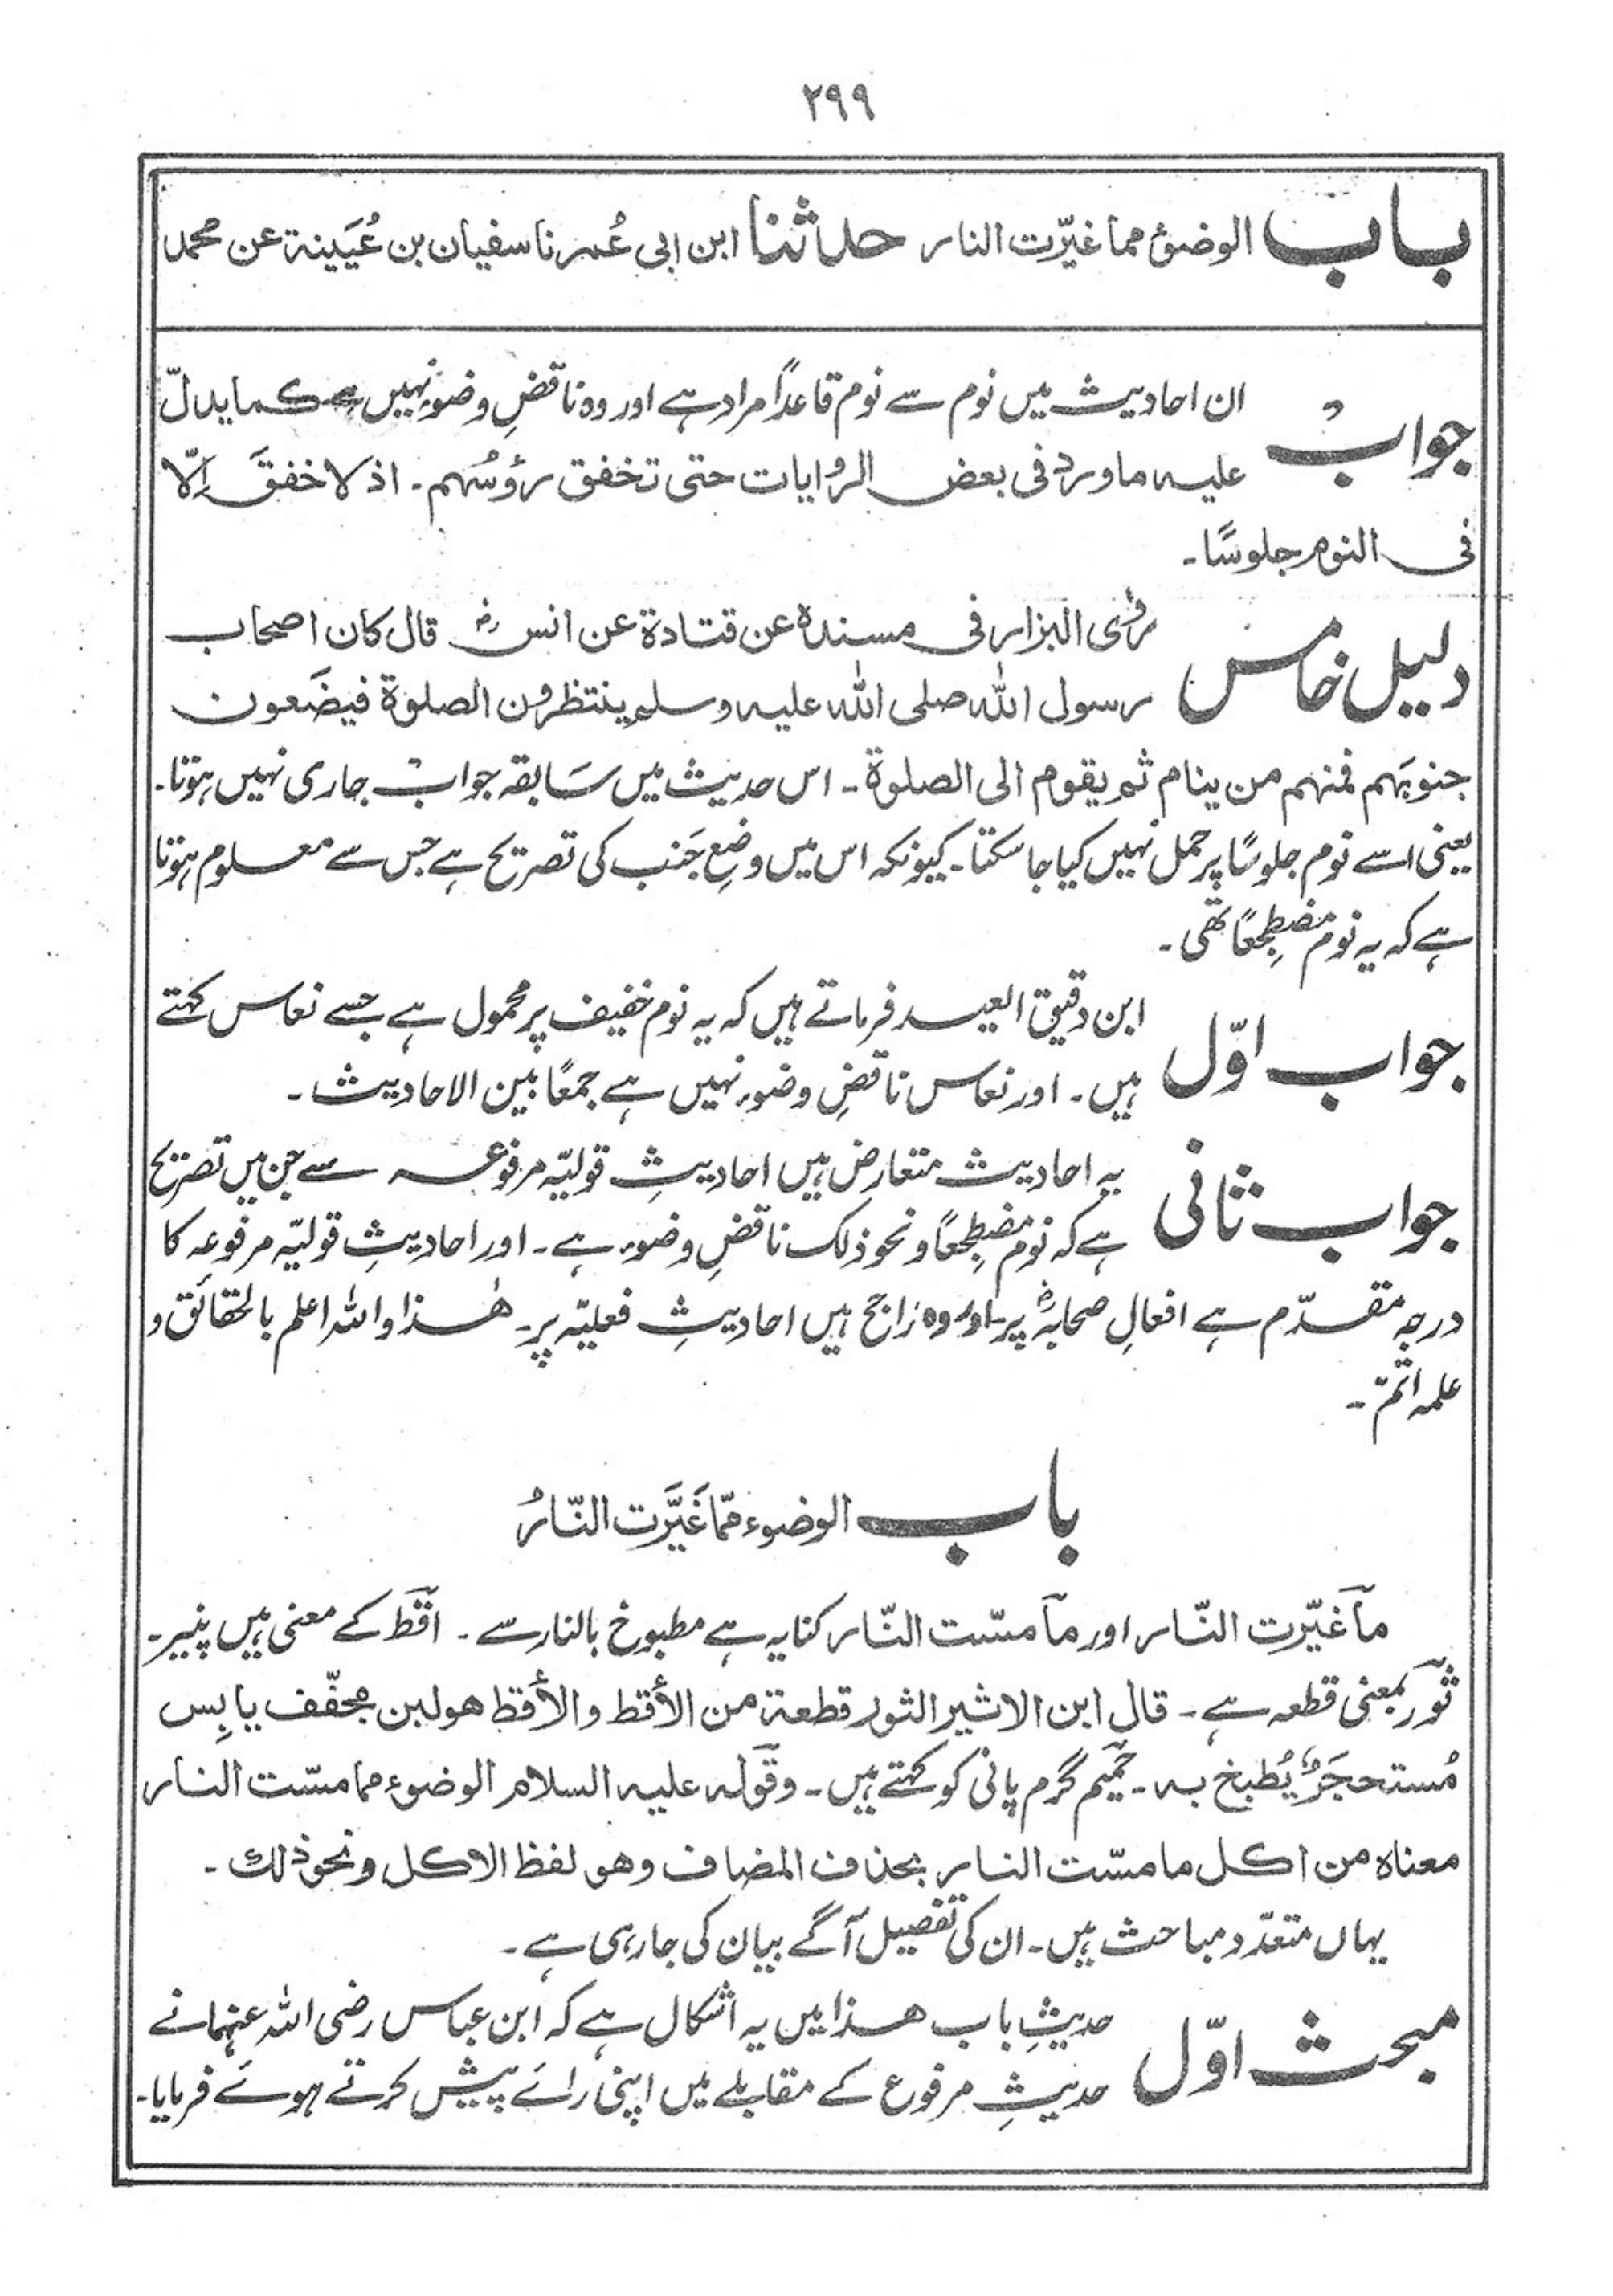 ۲۹۹
باب الوضوٴ مما غيّرت النار حدثنا ابن ابی عُمر نا سفيان بن عُيَينة عن محمد
جوابؒ ان احادیث میں نوم سے نوم قاعدًا مراد ہے اور وہ ناقضِ وضو نہیں ہے کما یدلّ
علیہ ما ورد فی بعض الروایات حتی تخفق رؤسُهم۔ اذ لا خفقَ اِلّا
فی النوم جلوسًا۔
دلیل خامس رَوی البزار فی مسندہ عن قتادة عن انس رض قال کان اصحاب
رسول الله صلی الله علیہ وسلم ینتظرون الصلوٰة فیضَعون
جنوبَهم فمنهم من ینام ثم یقوم الی الصلوٰة۔ اس حدیث میں سَابقہ جواب جاری نہیں ہوتا۔
یعنی اسے نوم جلوسًا پر حمل نہیں کیا جا سکتا۔ کیونکہ اس میں وضعِ جَنب کی تصریح ہے جس سے معلوم ہوتا
ہے کہ یہ نوم مضطجعًا تھی۔
جواب اوّل ابن دقیق العید فرماتے ہیں کہ یہ نوم خفیف پر محمول ہے جسے نعاس کہتے
ہیں۔ اور نعاس ناقضِ وضوء نہیں ہے جمعًا بین الاحادیث۔
جواب ثانی یہ احادیث متعارض ہیں احادیثِ قولیّہ مرفوعہ سے جن میں تصریح
ہے کہ نوم مضطجعًا و نحو ذلک ناقضِ وضوء ہے۔ اور احادیثِ قولیّہ مرفوعہ کا
درجہ مقدّم ہے افعالِ صحابہؓ پر۔ اور وہ راجح ہیں احادیثِ فعلیّہ پر۔ ھٰذا واللہ اعلم بالحقائق و
علمہ اتمّ۔
باب الوضوء ممّا غَيَّرت النّارُ
ما غیّرت النّار اور ما مسّت النّار کنایہ ہے مطبوخ بالنار سے۔ اقط کے معنی ہیں پنیر۔
ثور بمعنی قطعہ ہے۔ قال ابن الاثیر الثور قطعة من الأقط والأقط هو لبن مجفّف یابِس
مُستحجَر یُطبخ به۔ حمیم گرم پانی کو کہتے ہیں۔ وقوله علیه السلام الوضوء مما مسّت النار
معناه من اکل ما مسّت النار بحذف المضاف وهو لفظ الاکل ونحو ذلك۔
یہاں متعدّد مباحث ہیں۔ ان کی تفصیل آگے بیان کی جا رہی ہے۔
مبحث اوّل حدیثِ باب ھذا میں یہ اشکال ہے کہ ابن عباس رضی اللہ عنہما نے
حدیثِ مرفوع کے مقابلے میں اپنی رائے پیش کرتے ہوئے فرمایا۔